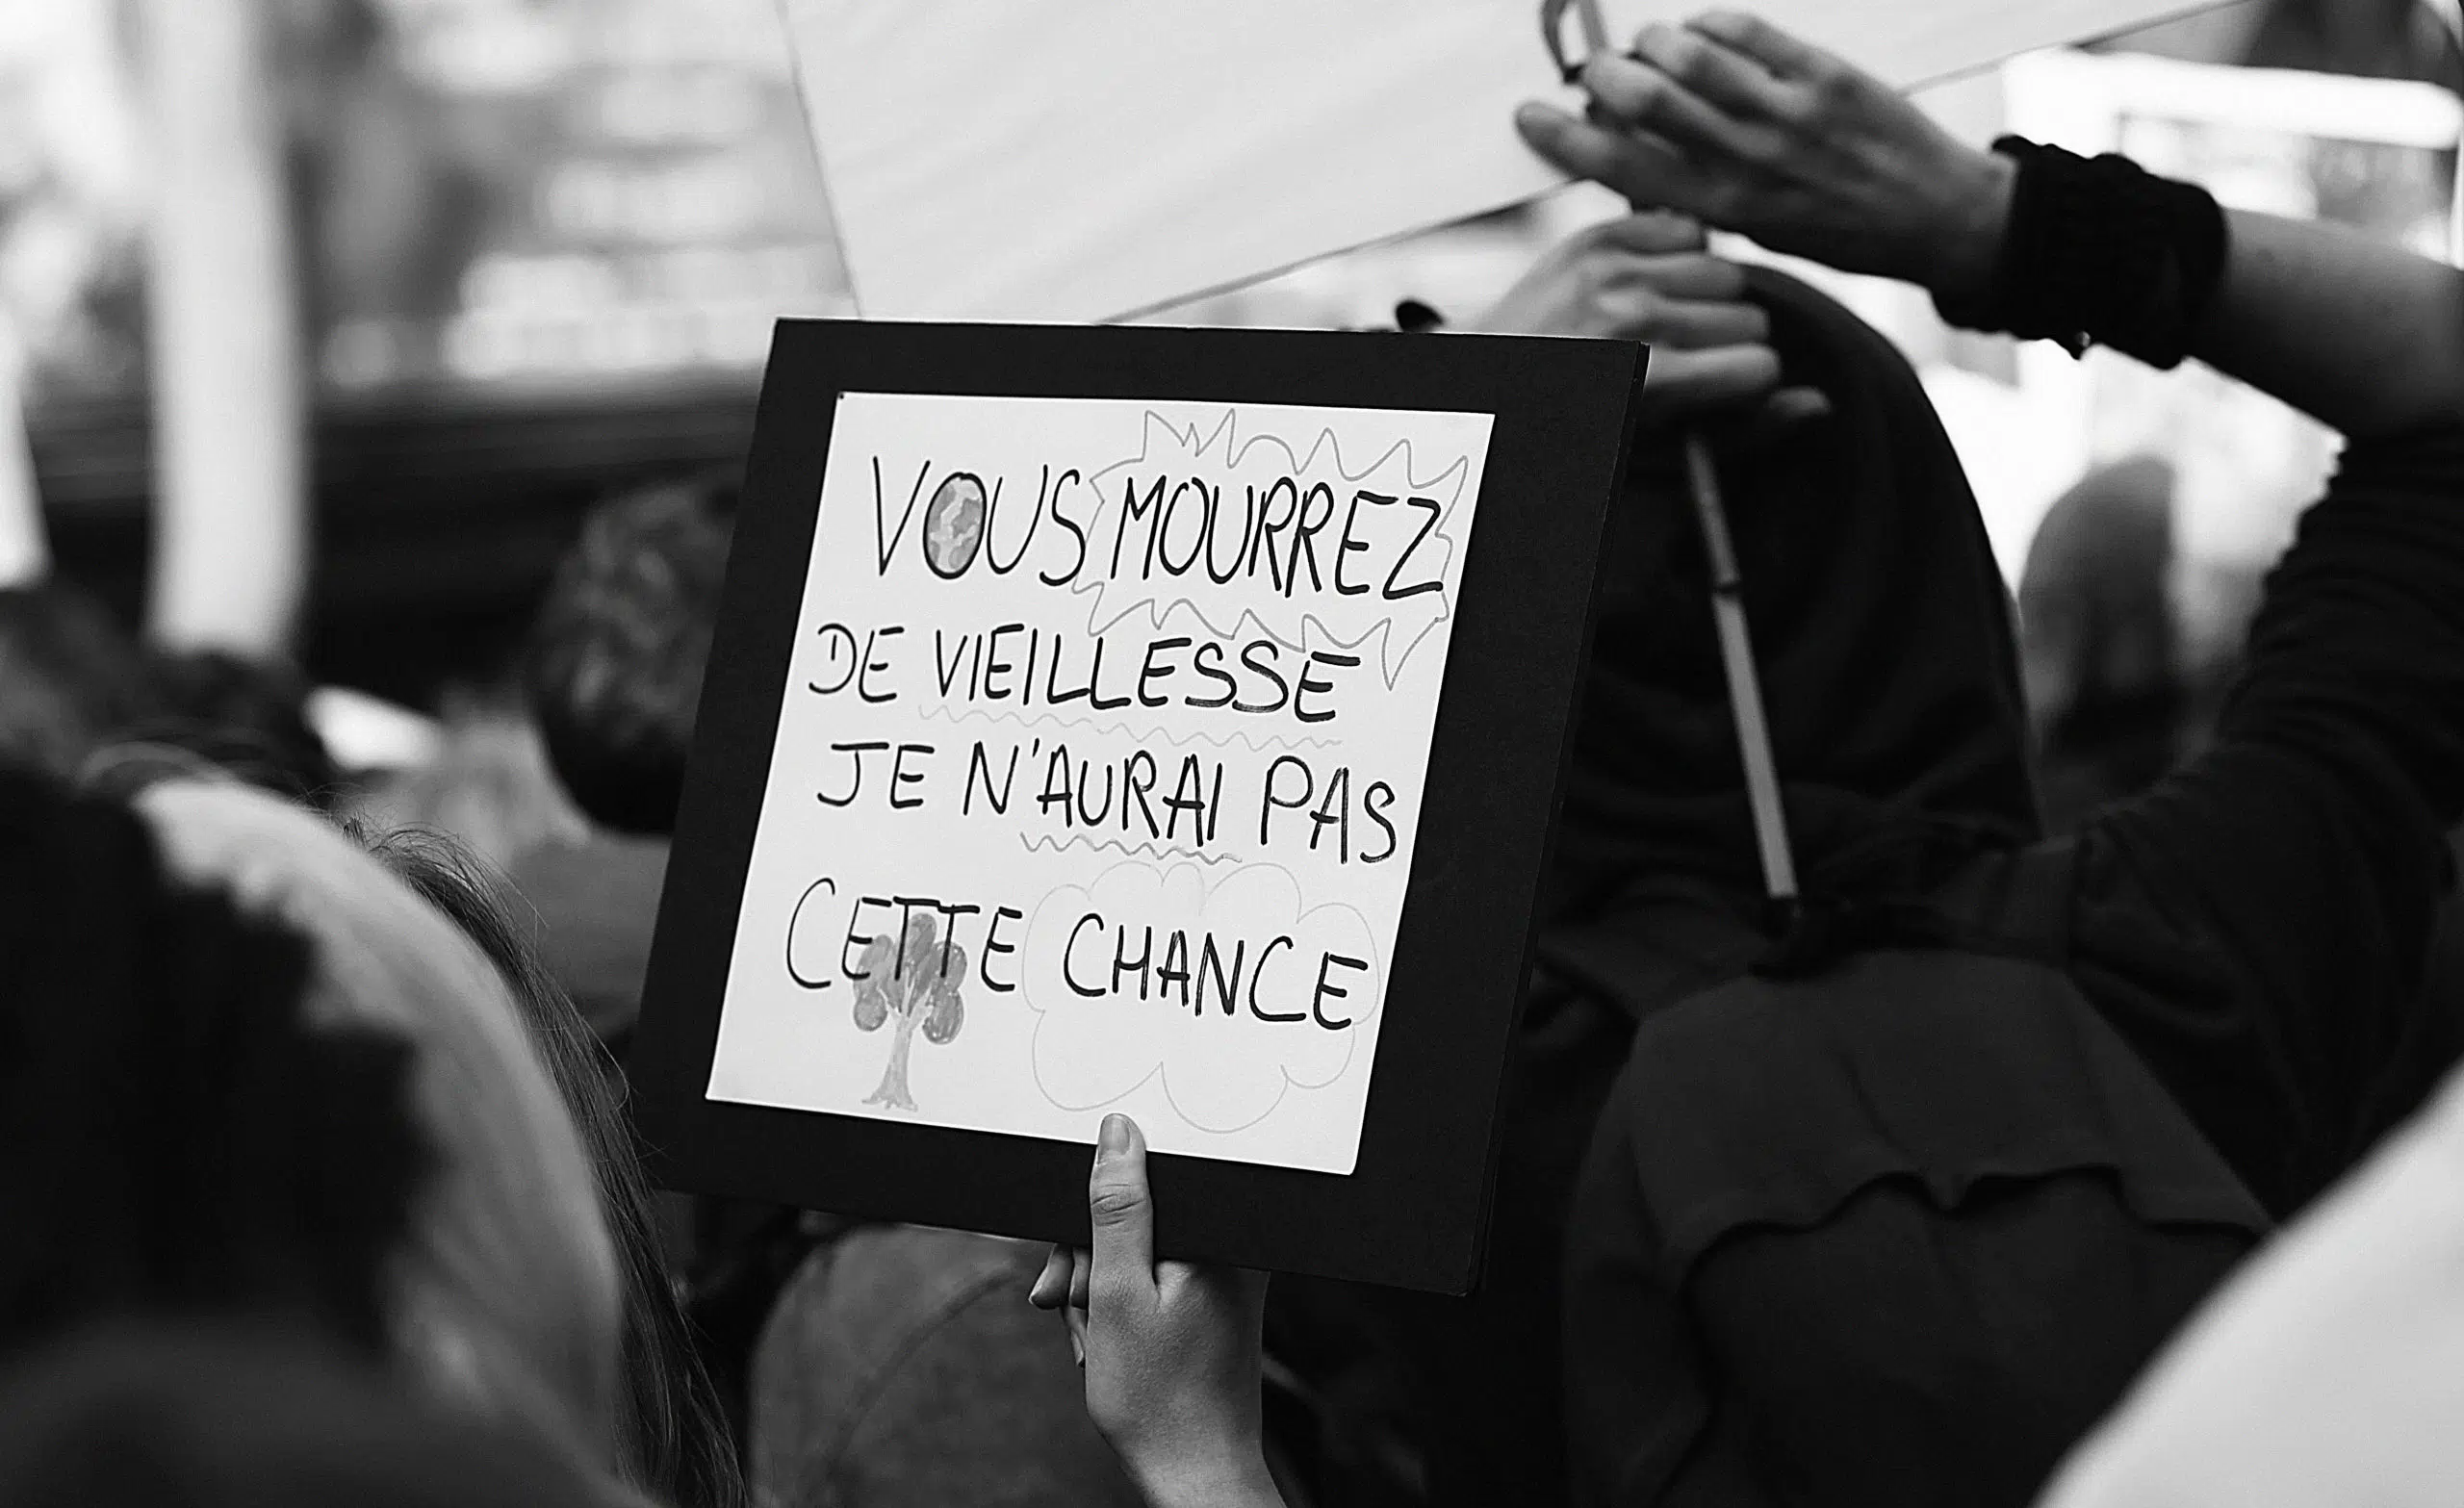 VOUS MOURREZ
DE VIEILLESSE
JE N'AURAI PAS
CETTE CHANCE